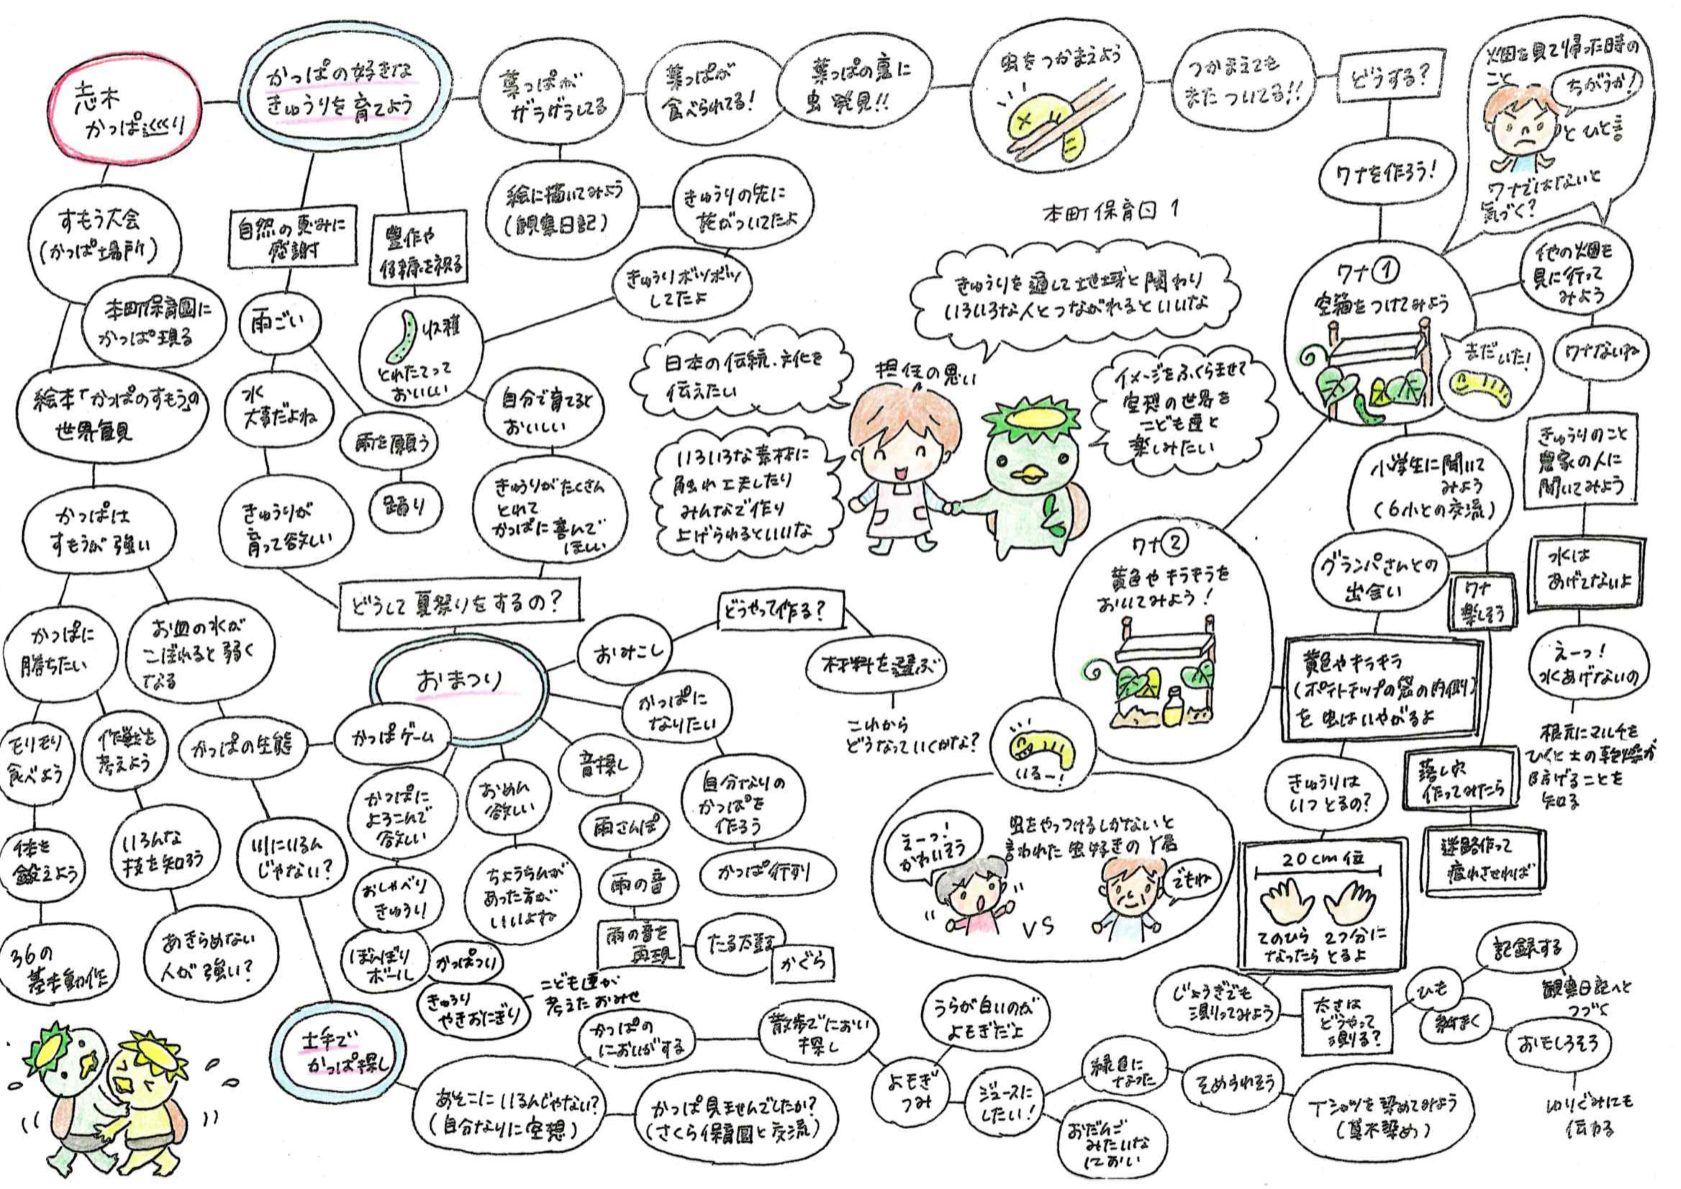 志木
かっぱ巡り
かっぱの好きな
きゅうりを育てよう
葉っぱが
ザラザラしてる
葉っぱが
食べられてる!
葉っぱの裏に
虫発見!!
虫をつかまえよう
つかまえても
またついてる!!
どうする?
ワナを作ろう!
畑を見て帰った時の
こと
ちがうか!
とひと言
ワナではないと
気づく?
すもう大会
(かっぱ場所)
本町保育園に
かっぱ現る
絵本「かっぱのすもう」の
世界観
かっぱは
すもうが強い
かっぱに
勝ちたい
お皿の水が
こぼれると弱く
なる
モリモリ
食べよう
作戦を
考えよう
かっぱの生態
体を
鍛えよう
いろんな
技を知ろう
川にいるん
じゃない?
36の
基本動作
あきらめない
人が強い?
自然の恵みに
感謝
豊作や
を祝る
雨ごい
収穫
とれたてって
おいしい
水
大事だよね
雨を願う
踊り
きゅうりが
育って欲しい
絵に描いてみよう
(観察日記)
きゅうりの先に
花がついてたよ
きゅうりボツボツ
してたよ
自分で育てると
おいしい
きゅうりがたくさん
とれて
かっぱに喜んで
ほしい
どうして夏祭りをするの?
本町保育園1
きゅうりを通して地域と関わり
いろいろな人とつながれるといいな
日本の伝統・文化を
伝えたい
担任の思い
イメージをふくらませて
空想の世界を
こども達と
楽しみたい
いろいろな素材に
触れ工夫したり
みんなで作り
上げられるといいな
ワナ①
空箱をつけてみよう
まだいた!
他の畑を
見に行って
みよう
ワナないね
きゅうりのこと
農家の人に
聞いてみよう
水は
あげてないよ
えーっ!
水あげないの
根元にマルチを
ひくと土の乾燥が
防げることを
知る
小学生に聞いて
みよう
(6小との交流)
グランパさんとの
出会い
ワナ
楽しそう
落し穴
作ってみたら
迷路作って
疲れさせれば
ワナ②
黄色やキラキラを
おいてみよう!
黄色やキラキラ
(ポテトチップの袋の内側)
を虫はいやがるよ
いるー!
虫をやっつけるしかないと
言われた虫好きのY君
えーっ!
かわいそう
VS
でもね
きゅうりは
いつとるの?
20cm位
てのひら2つ分に
なったらとるよ
じょうぎでも
測ってみよう
太さは
どうやって
測る?
ひも
記録する
観察日記へと
つづく
おもしろそう
ゆりぐみにも
伝わる
おまつり
おみこし
どうやって作る?
材料を選ぶ
これから
どうなっていくかな?
かっぱに
なりたい
自分なりの
かっぱを
作ろう
かっぱ行列
かっぱゲーム
かっぱに
よろこんで
欲しい
おめん
欲しい
ちょうちんが
あった方が
いいよね
音探し
雨さんぽ
雨の音
雨の音を
再現
たる太鼓
かぐら
おしゃべり
きゅうり
ぼんぼり
ボール
かっぱつり
きゅうり
やきおにぎり
こども達が
考えたおみせ
土手で
かっぱ探し
あそこにいるんじゃない?
(自分なりに空想)
かっぱ見ませんでしたか?
(さくら保育園と交流)
かっぱの
においがする
散歩でにおい
探し
よもぎ
つみ
うらが白いのが
よもぎだよ
ジュースに
したい!
緑色に
なった
おだんご
みたいな
におい
そめられそう
Tシャツを染めてみよう
(草木染め)